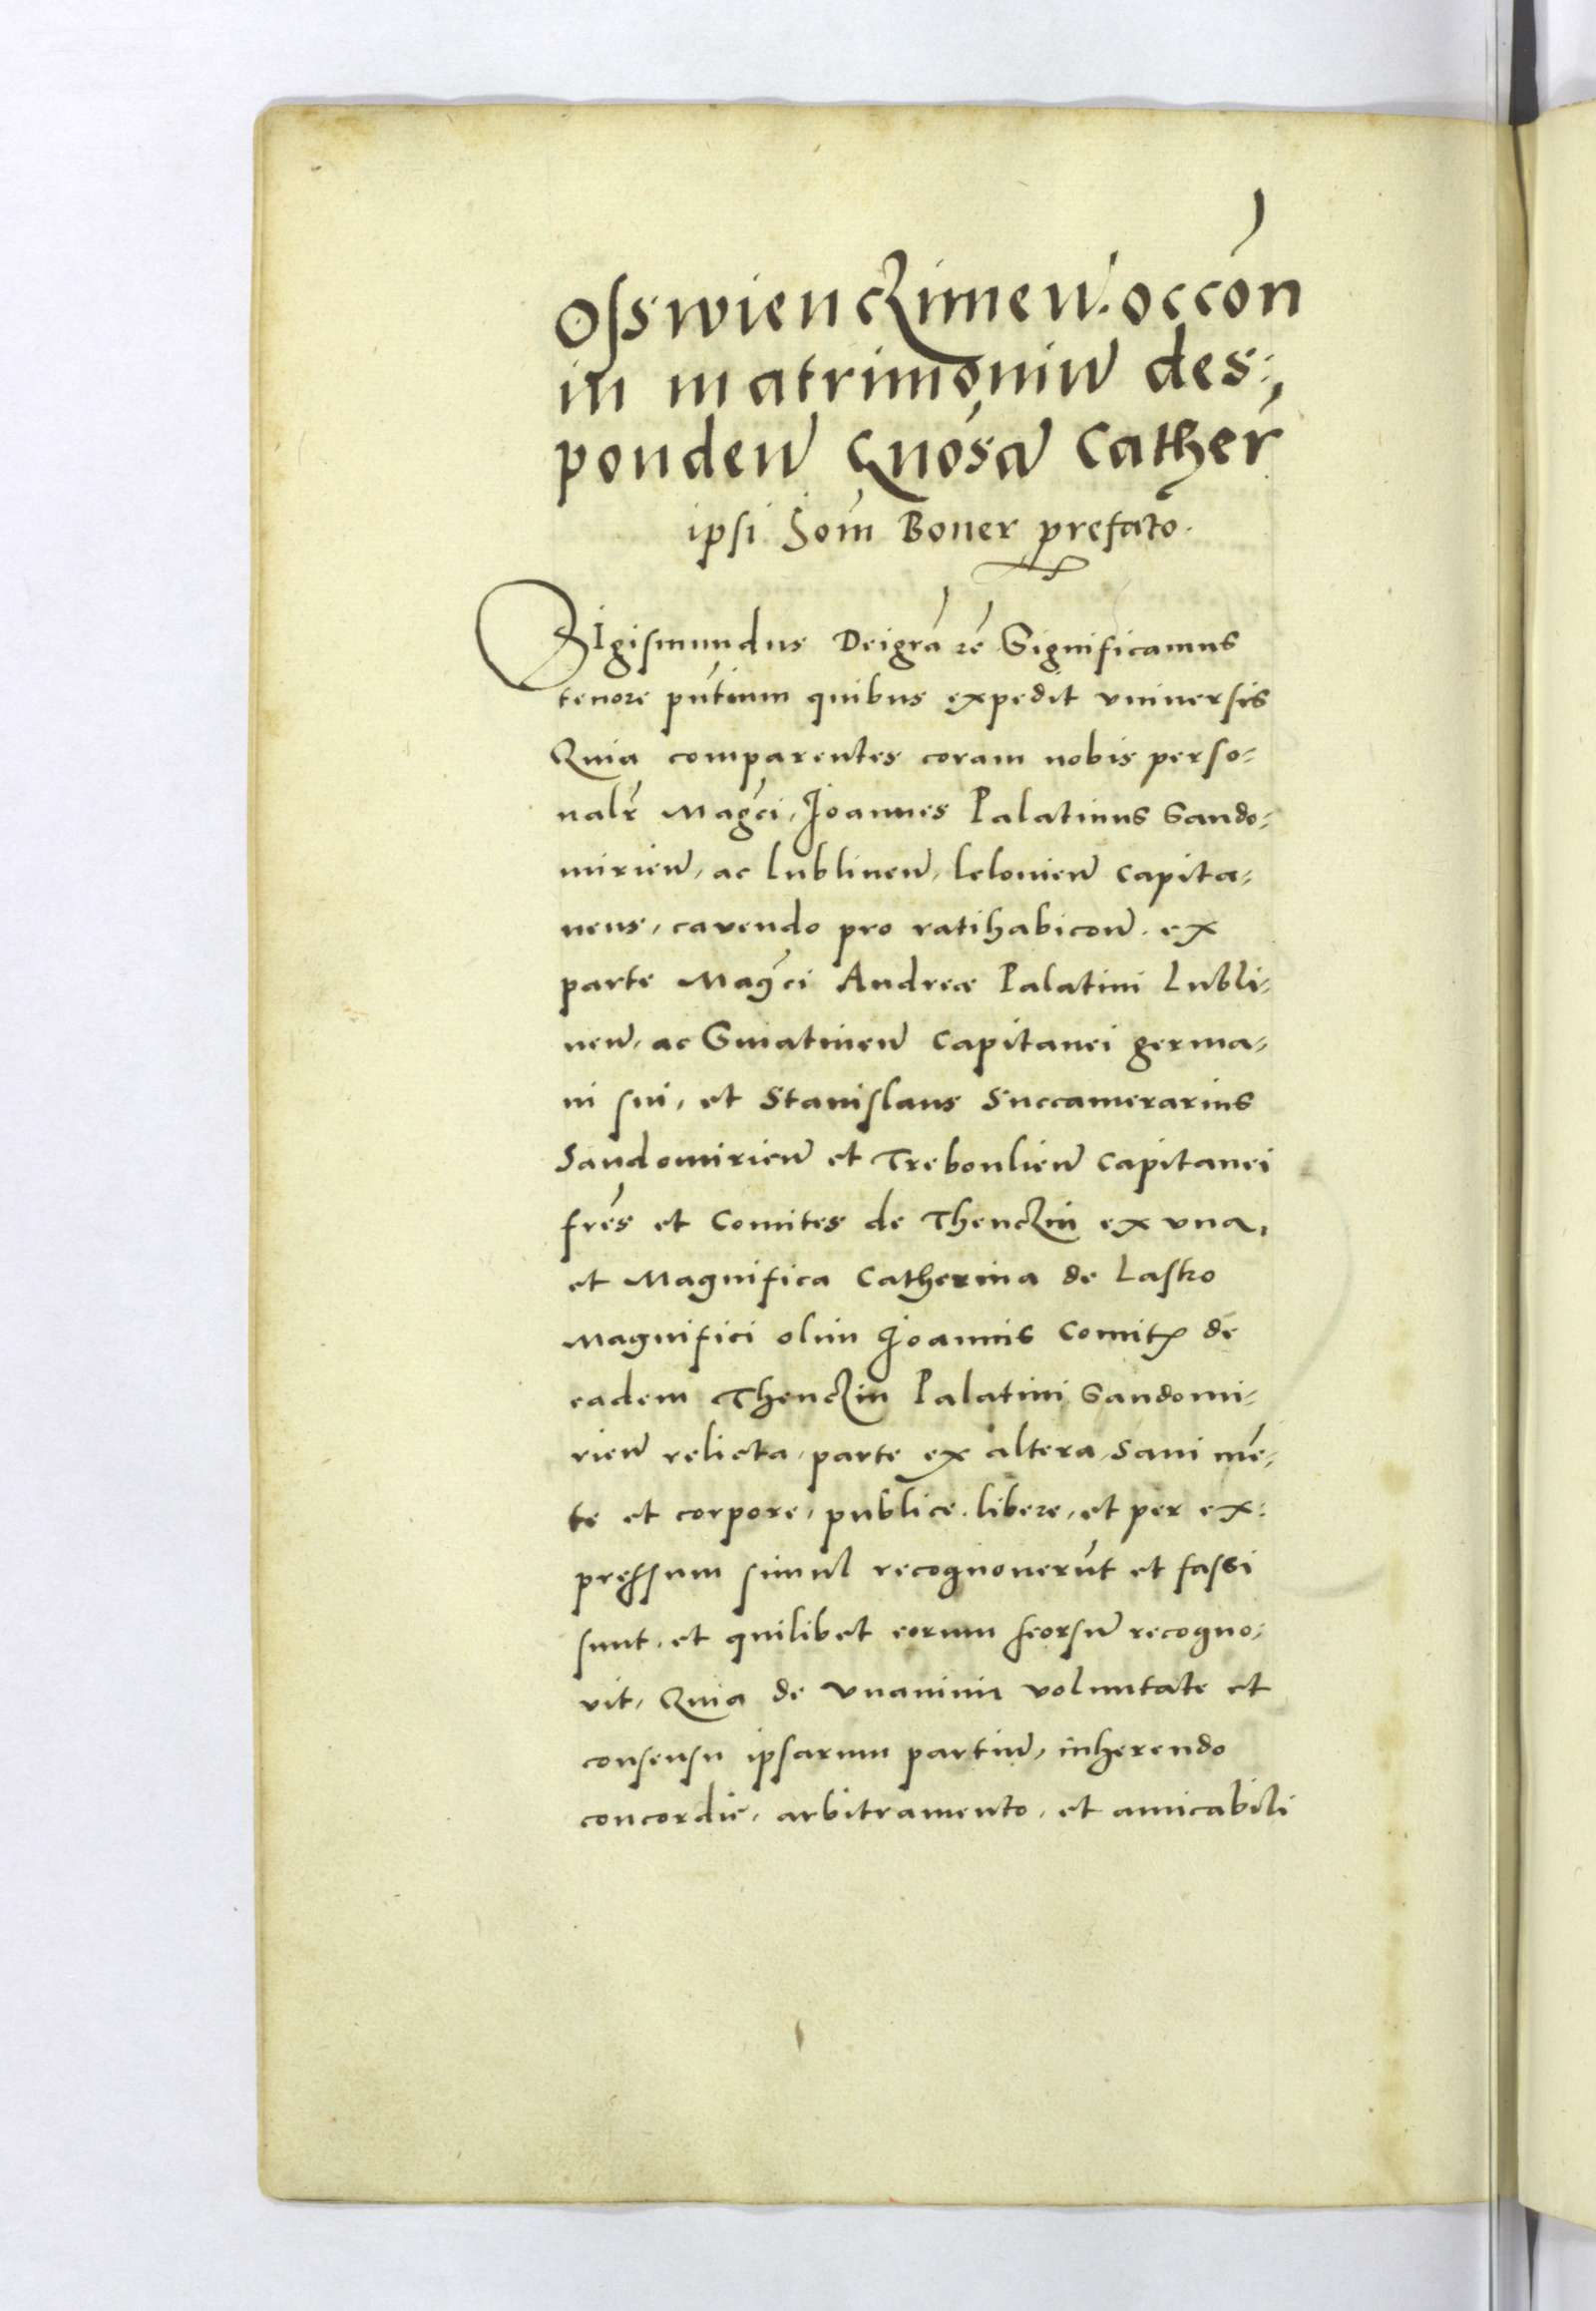 Osswienczimen̄. occōn
in matrimoniū des:
ponden̄ Gnōsā Cather̄
ipsi Som̄ Boner prefato.
SIgismundus Dei grā rē Significamus
tenore pn̄tium quibus expedit vniversis
Quia comparentes coram nobis perso-
nalr̄ Magc̄i, Joannes Palatinus Sando-
mirien̄, ac lublinen̄, lelovien̄ capita-
neus, cavendo pro ratihabicon̄. ex
parte Magc̄i Andreæ Palatini Lubli-
nen̄, ac Sniatinen̄ capitanei germa-
ni sui, et Stanislaus Succamerarius
Sandomirien̄ et Trebonlien̄ capitanei
frēs et Comites de Thenczin ex vna,
et Magnifica Catherina de Lasko
Magnifici olim Joannis Comitꝭ de
eadem Thenczin Palatini Sandomi-
rien̄ relicta, parte ex altera, Sani mē-
te et corpore, publice. libere, et per ex-
pręssum simul recognoverūt et fassi
sunt, et quilibet eorum seorsū recogno-
vit, Quia de vnanimi voluntate et
consensu ipsarum partiū, inherendo
concordie, arbitramento, et amicabili